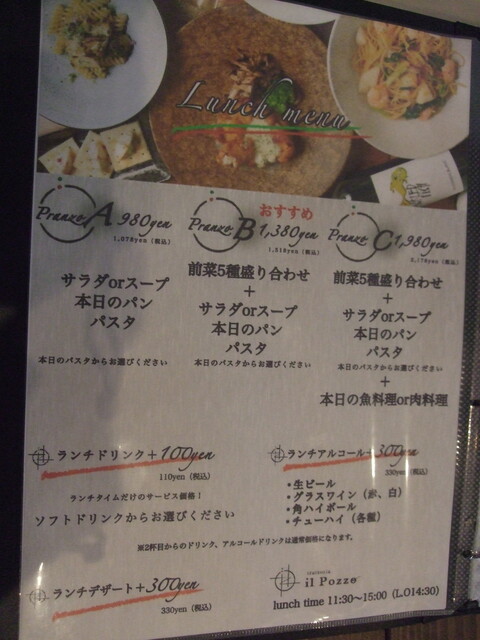 Lunch menu
Pranzo A 980yen
1,078yen（税込）
サラダorスープ
本日のパン
パスタ
本日のパスタからお選びください
おすすめ
Pranzo B 1,380yen
1,518yen（税込）
前菜5種盛り合わせ
＋
サラダorスープ
本日のパン
パスタ
本日のパスタからお選びください
Pranzo C 1,980yen
2,178yen（税込）
前菜5種盛り合わせ
＋
サラダorスープ
本日のパン
パスタ
本日のパスタからお選びください
＋
本日の魚料理or肉料理
ランチドリンク＋100yen
110yen（税込）
ランチタイムだけのサービス価格！
ソフトドリンクからお選びください
ランチアルコール＋300yen
330yen（税込）
・生ビール
・グラスワイン（赤、白）
・角ハイボール
・チューハイ（各種）
※2杯目からのドリンク、アルコールドリンクは通常価格になります。
ランチデザート＋300yen
330yen（税込）
il Pozzo
lunch time 11:30～15:00（L.O14:30）